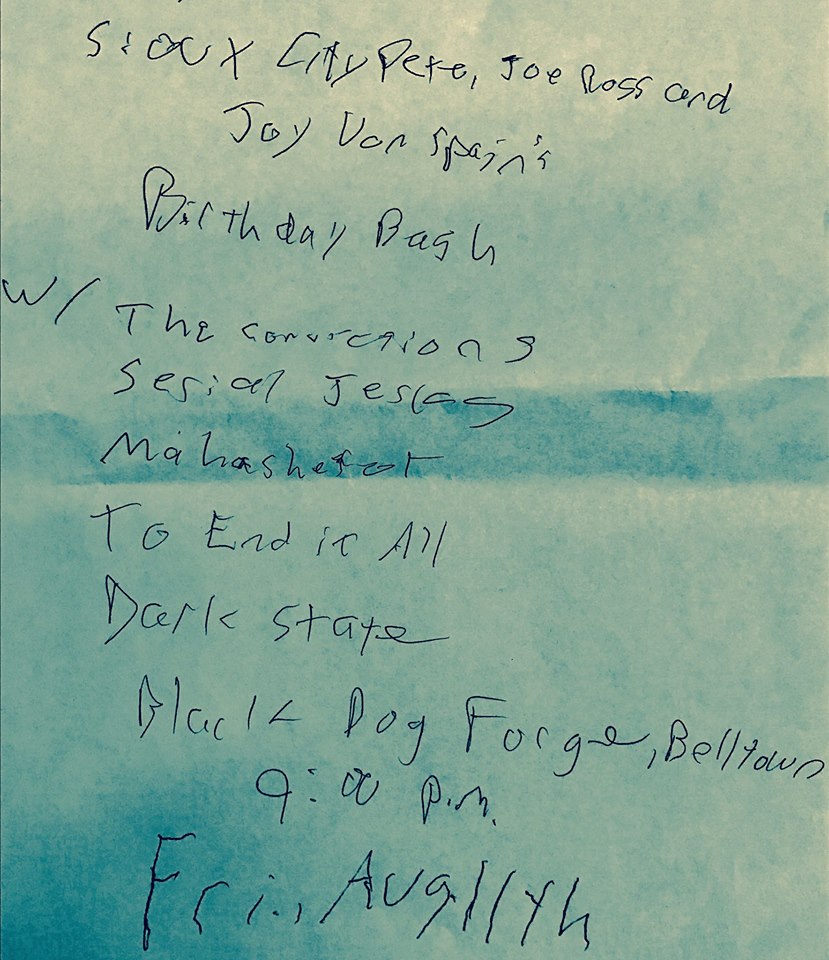 Sioux City Pete, Joe Ross and
Joy Von Spain's
Birthday Bash
w/ The Convictions
Serial
Mahashefot
To End it All
Dark State
Black Dog Forge, Belltown
9:00 p.m.
Fri., Aug 11th